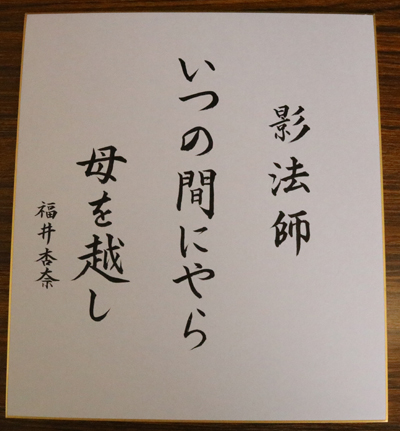 影法師
いつの間にやら
母を越し
福井杏奈